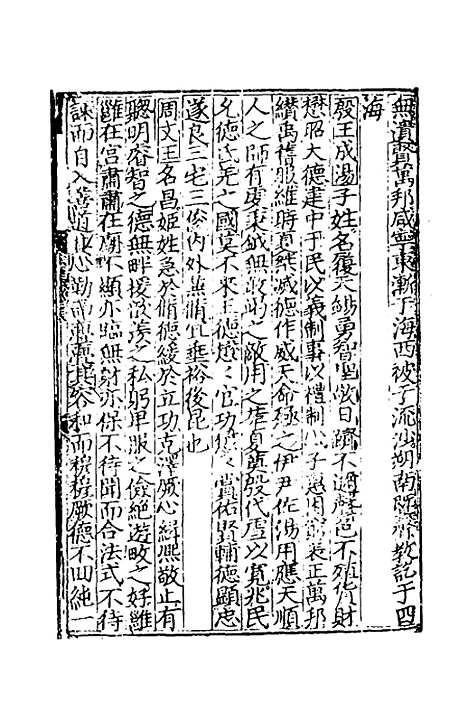 無遺賢萬邦咸寧東漸于海西被于流沙朔南暨聲教訖于四
海
殷王成湯子姓名履天錫勇智聖敬日躋不邇聲色不殖貨財
懋昭大德建中于民以義制事以禮制心子惠困窮表正萬邦
纘禹舊服維時夏桀滅德作威天命殛之伊尹佐湯用應天順
人之師有虔秉鉞無敢曷之敵用之革夏奠殷代虐以寬兆民
允德氐羌之國莫不來王德懋懋官功懋懋賞佑賢輔德顯忠
遂良三宅三俊內外無備宜垂裕後昆也
周文王名昌姬姓急於脩德緩於立功克澤厥心緝熙敬止有
聰明睿智之德無畔援歆羨之私躬卑服之儉絕遊畋之好雖
雖在宮肅肅在廟不顯亦臨無射亦保不待聞而合法式不待
諫而自入善道小心
和而穆穆厥德不回純一